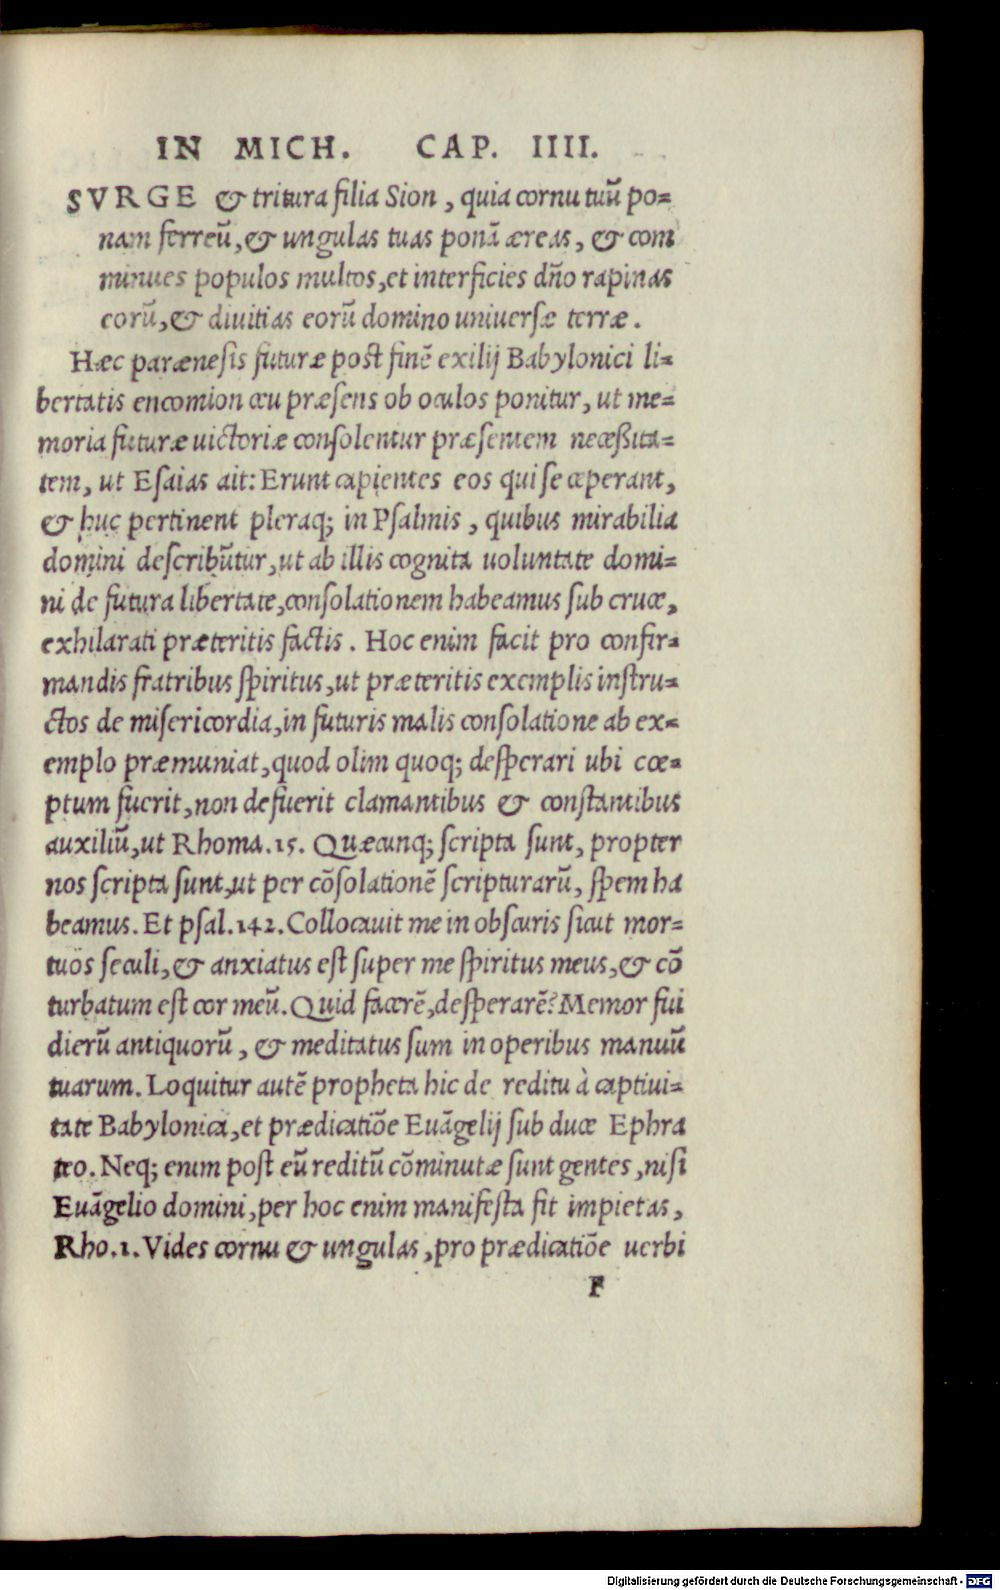 IN MICH. CAP. IIII.
SVRGE & tritura filia Sion, quia cornu tuū po=
nam ferreū, & ungulas tuas ponā æreas, & com
minues populos multos, et interficies dño rapinas
eorū, & divitias eorū domino universæ terræ.
Hæc parænesis futuræ post finē exilij Babylonici li=
bertatis encomion ceu præsens ob oculos ponitur, ut me=
moria futuræ uictoriæ consolentur præsentem neceßita=
tem, ut Esaias ait: Erunt capientes eos qui se ceperant,
& huc pertinent pleraq; in Psalmis, quibus mirabilia
domini describūtur, ut ab illis cognita uoluntate domi=
ni de futura libertate, consolationem habeamus sub cruce,
exhilarati præteritis factis. Hoc enim facit pro confir=
mandis fratribus spiritus, ut præteritis exemplis instru=
ctos de misericordia, in futuris malis consolatione ab ex=
emplo præmuniat, quod olim quoq; desperari ubi cœ=
ptum fuerit, non defuerit clamantibus & constantibus
auxiliū, ut Rhoma. 15. Quæcunq; scripta sunt, propter
nos scripta sunt, ut per cōsolationē scripturarū, spem ha
beamus. Et psal. 142. Collocauit me in obscuris sicut mor=
tuos seculi, & anxiatus est super me spiritus meus, & cō
turbatum est cor meū. Quid facerē, desperarē? Memor fui
dierū antiquorū, & meditatus sum in operibus manuū
tuarum. Loquitur autē propheta hic de reditu à captiui=
tate Babylonica, et prædicatiōe Euāgelij sub duce Ephra
teo. Neq; enim post eū reditū cōminutæ sunt gentes, nisi
Euāgelio domini, per hoc enim manifesta fit impietas,
Rho. 1. Vides cornu & ungulas, pro prædicatiōe uerbi
F
Digitalisierung gefördert durch die Deutsche Forschungsgemeinschaft - DFG